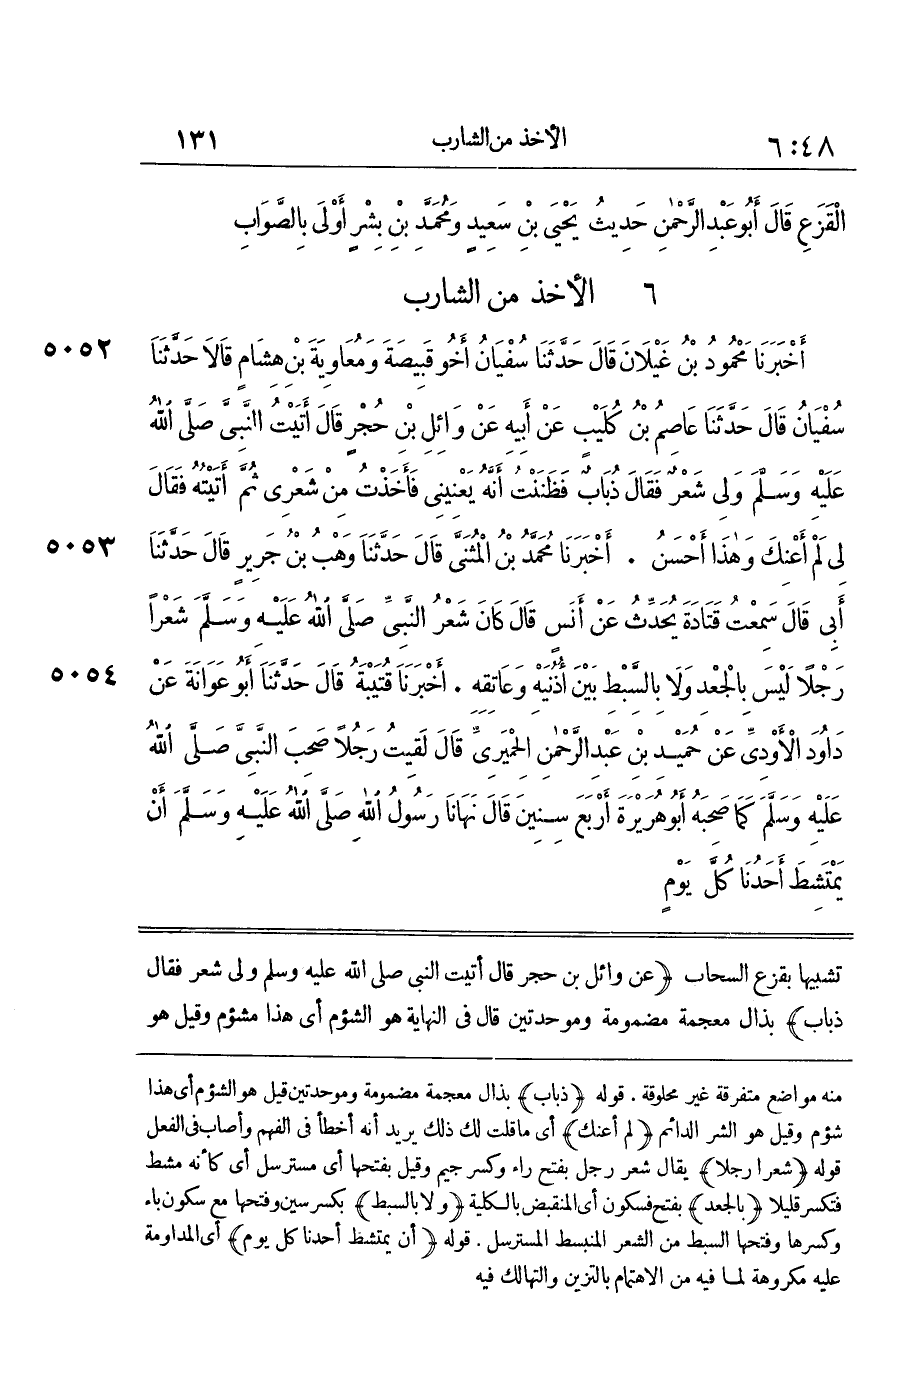 ٦:٤٨ الأخذ من الشارب ١٣١
الْقَزَعِ قَالَ أَبُو عَبْدِ الرَّحْمٰنِ حَدِيثُ يَحْيَى بْنِ سَعِيدٍ وَمُحَمَّدِ بْنِ بِشْرٍ أَوْلَى بِالصَّوَابِ
٦ الأخذ من الشارب
أَخْبَرَنَا مَحْمُودُ بْنُ غَيْلَانَ قَالَ حَدَّثَنَا سُفْيَانُ أَخُو قَبِيصَةَ وَمُعَاوِيَةَ بْنِ هِشَامٍ قَالَا حَدَّثَنَا ٥٠٥٢
سُفْيَانُ قَالَ حَدَّثَنَا عَاصِمُ بْنُ كُلَيْبٍ عَنْ أَبِيهِ عَنْ وَائِلِ بْنِ حُجْرٍ قَالَ أَتَيْتُ النَّبِيَّ صَلَّى اللهُ
عَلَيْهِ وَسَلَّمَ وَلِي شَعْرٌ فَقَالَ ذُبَابٌ فَظَنَنْتُ أَنَّهُ يَعْنِينِي فَأَخَذْتُ مِنْ شَعْرِي ثُمَّ أَتَيْتُهُ فَقَالَ
لِي لَمْ أَعْنِكَ وَهٰذَا أَحْسَنُ . أَخْبَرَنَا مُحَمَّدُ بْنُ الْمُثَنَّى قَالَ حَدَّثَنَا وَهْبُ بْنُ جَرِيرٍ قَالَ حَدَّثَنَا ٥٠٥٣
أَبِي قَالَ سَمِعْتُ قَتَادَةَ يُحَدِّثُ عَنْ أَنَسٍ قَالَ كَانَ شَعْرُ النَّبِيِّ صَلَّى اللهُ عَلَيْهِ وَسَلَّمَ شَعْرًا
رَجْلًا لَيْسَ بِالْجَعْدِ وَلَا بِالسَّبْطِ بَيْنَ أُذُنَيْهِ وَعَاتِقِهِ . أَخْبَرَنَا قُتَيْبَةُ قَالَ حَدَّثَنَا أَبُو عَوَانَةَ عَنْ ٥٠٥٤
دَاوُدَ الْأَوْدِيِّ عَنْ حُمَيْدِ بْنِ عَبْدِ الرَّحْمٰنِ الْحِمْيَرِيِّ قَالَ لَقِيتُ رَجُلًا صَحِبَ النَّبِيَّ صَلَّى اللهُ
عَلَيْهِ وَسَلَّمَ كَمَا صَحِبَهُ أَبُو هُرَيْرَةَ أَرْبَعَ سِنِينَ قَالَ نَهَانَا رَسُولُ اللهِ صَلَّى اللهُ عَلَيْهِ وَسَلَّمَ أَنْ
يَمْتَشِطَ أَحَدُنَا كُلَّ يَوْمٍ
تشبيها بقزع السحاب ﴿عن وائل بن حجر قال أتيت النبى صلى الله عليه وسلم ولى شعر فقال
ذباب﴾ بذال معجمة مضمومة وموحدتين قال فى النهاية هو الشؤم أى هذا مشؤم وقيل هو
منه مواضع متفرقة غير محلوقة . قوله ﴿ذباب﴾ بذال معجمة مضمومة وموحدتين قيل هو الشؤم أى هذا
شؤم وقيل هو الشر الدائم ﴿لم أعنك﴾ أى ماقلت لك ذلك يريد أنه أخطأ فى الفهم وأصاب فى الفعل
قوله ﴿شعرا رجلا﴾ يقال شعر رجل بفتح راء وكسر جيم وقيل بفتحها أى مسترسل أى كأنه مشط
فتكسر قليلا ﴿بالجعد﴾ بفتح فسكون أى المنقبض بالكلية ﴿ولا بالسبط﴾ بكسر سين وفتحها مع سكون باء
وكسرها وفتحها السبط من الشعر المنبسط المسترسل . قوله ﴿أن يمتشط أحدنا كل يوم﴾ أى المداومة
عليه مكروهة لما فيه من الاهتمام بالتزين والتهالك فيه